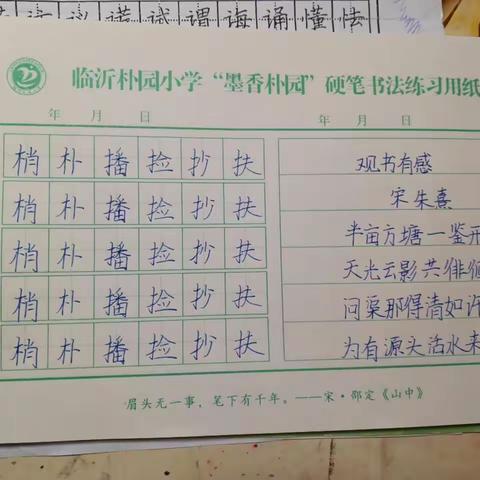 议 诺 试 谓 诲 诵 懂 怯
临沂朴园小学“墨香朴园”硬笔书法练习用纸
年 月 日 年 月 日
梢 朴 播 捡 抄 扶
梢 朴 播 捡 抄 扶
梢 朴 播 捡 抄 扶
梢 朴 播 捡 抄 扶
梢 朴 播 捡 抄 扶
观书有感
宋 朱熹
半亩方塘一鉴开
天光云影共徘徊
问渠那得清如许
为有源头活水来
眉头无一事，笔下有千年。——宋·邵定《山中》